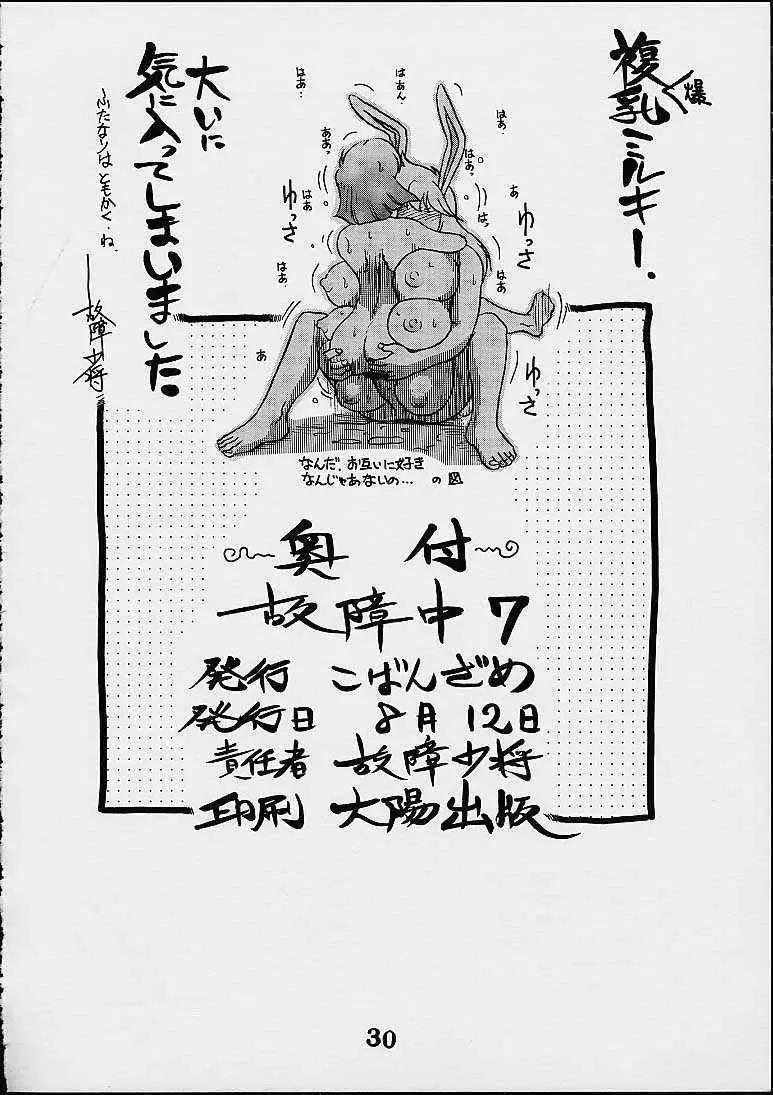 複乳ミルキー、
爆
大いに
気に入ってしまいました。
～ふたなりはともかく、ね、
故障少将
はあ…
はあん。
はぁ、
ああっ
はぁっ…
はあ
ゆっさ
あ
ゆっさ
はっ
はあ
はあ
あ
ゆっさ
なんだ、お互いに好き
なんじゃあないの… の図
奥付
故障中7
発行 こばんざめ
発行日 8月12日
責任者 故障少将
印刷 大陽出版
30